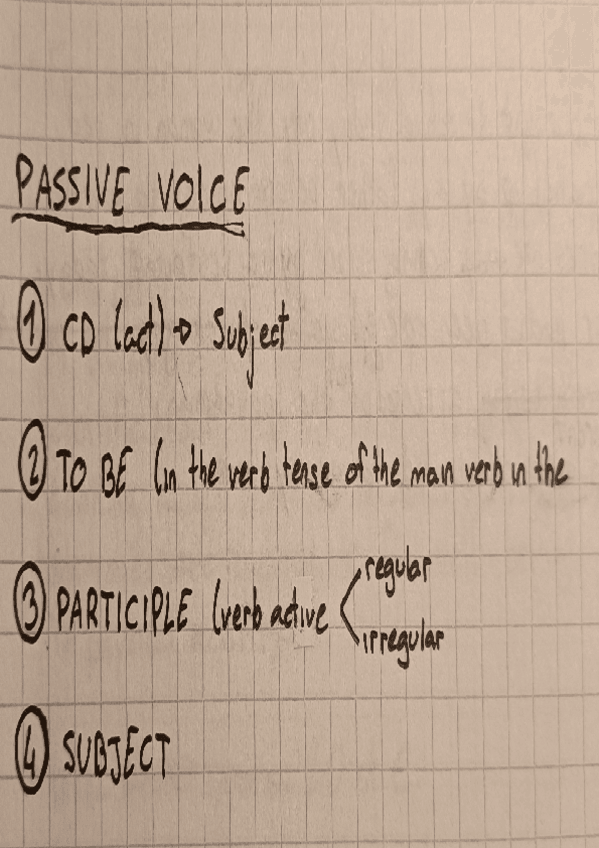 PASSIVE VOICE
① CD (act) → Subject
② TO BE (in the verb tense of the man verb in the
③ PARTICIPLE (verb active < regular
irregular
④ SUBJECT